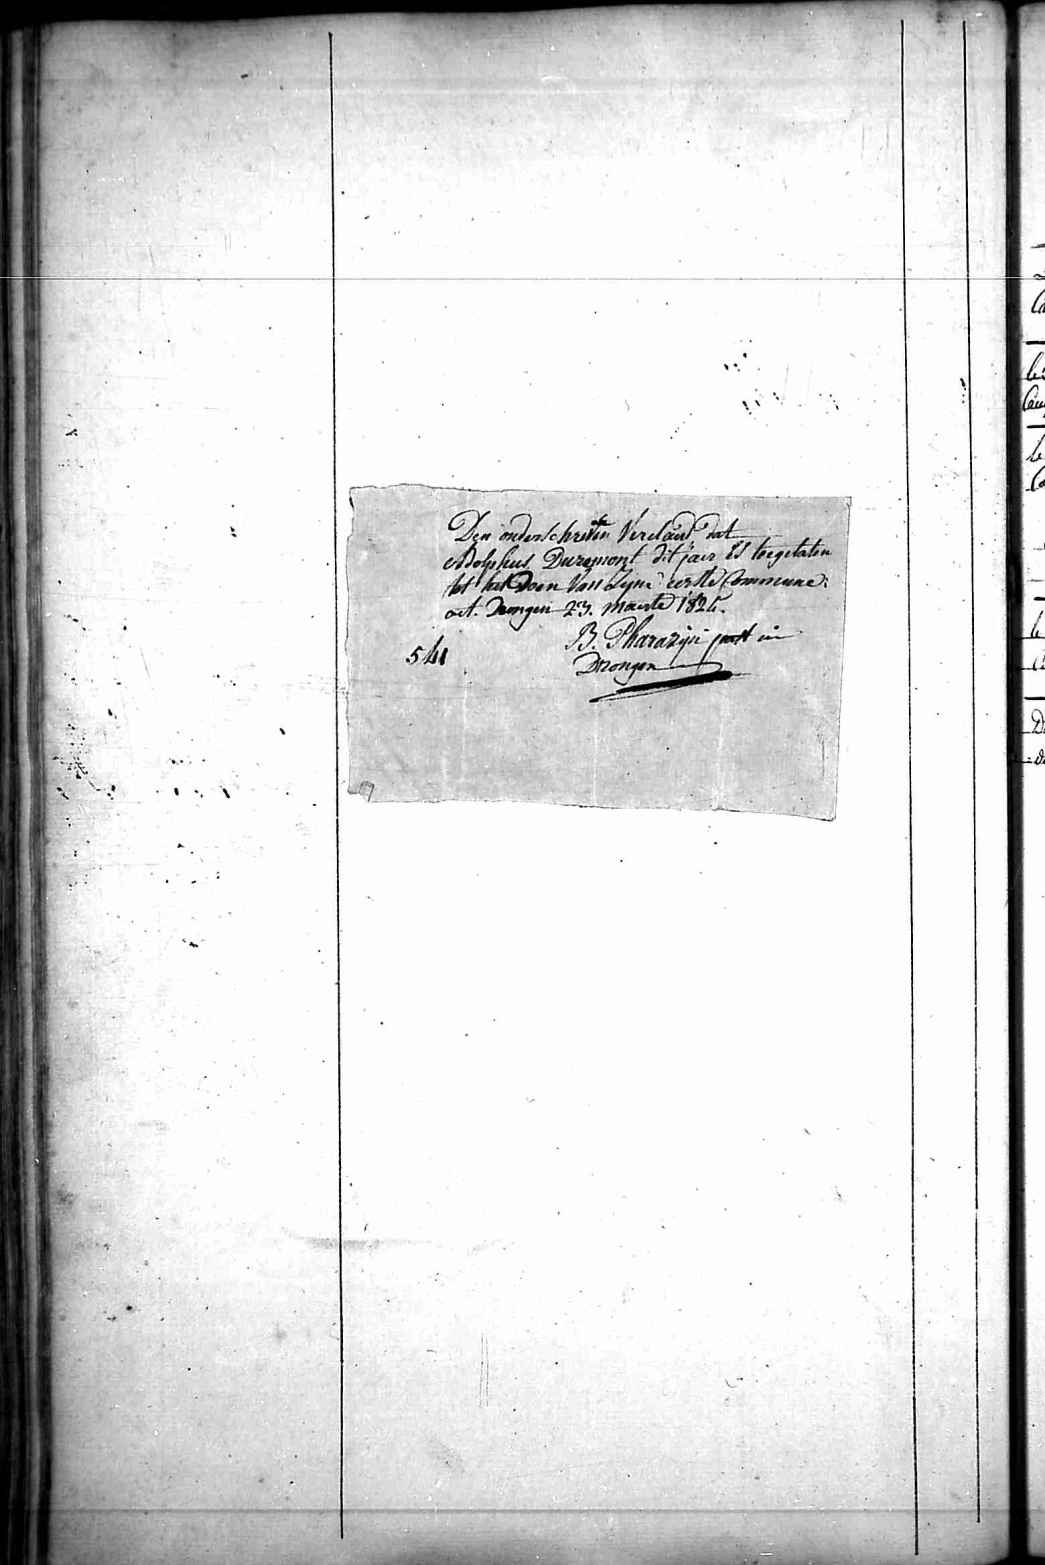 Den onderschreven Verclaert dat
Adolphus Duremont dit jaer is toegelaten
tot het Doen Van Syne eerste Commune:
act. Drongen 23. maerte 182
B. Pharazijn past in
Drongen
541